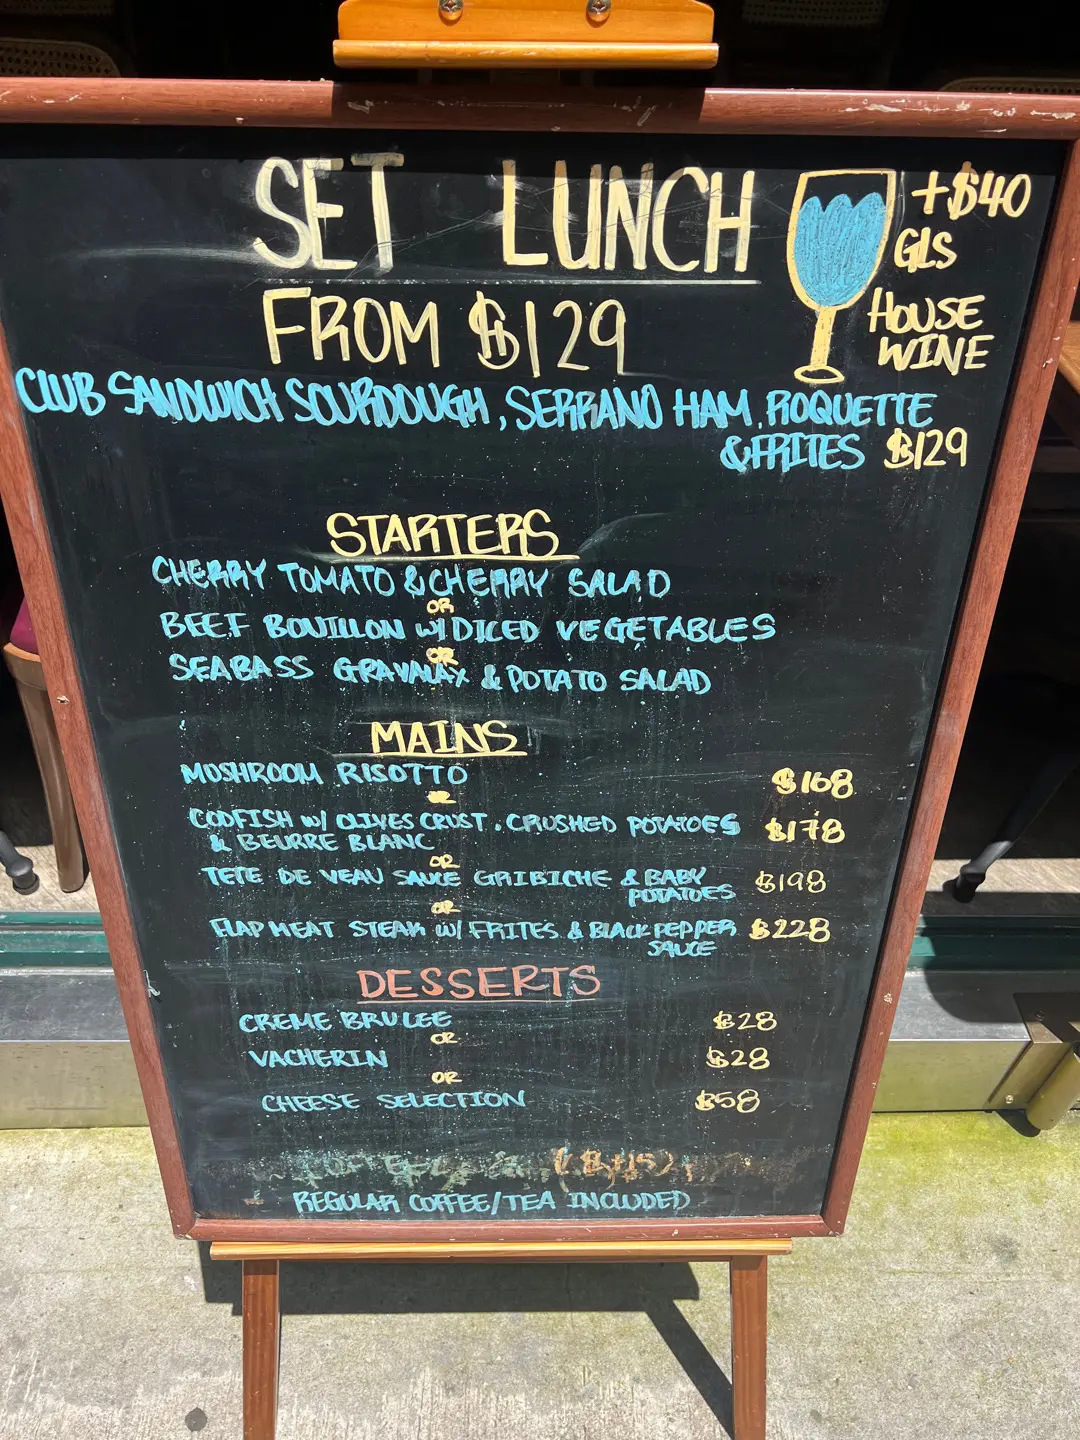 SET LUNCH
FROM $129
+$40
GLS
HOUSE
WINE
CLUB SANDWICH SOURDOUGH, SERRANO HAM, ROQUETTE
& FRITES $129
STARTERS
CHERRY TOMATO & CHERRY SALAD
OR
BEEF BOUILLON W/ DICED VEGETABLES
OR
SEABASS GRAVALAX & POTATO SALAD
MAINS
MUSHROOM RISOTTO $168
OR
CODFISH W/ OLIVES CRUST, CRUSHED POTATOES $178
& BEURRE BLANC
OR
TETE DE VEAU SAUCE GRIBICHE & BABY $198
POTATOES
OR
FLAP MEAT STEAK W/ FRITES & BLACK PEPPER $228
SAUCE
DESSERTS
CREME BRULEE $28
OR
VACHERIN $28
OR
CHEESE SELECTION $58
REGULAR COFFEE/TEA INCLUDED